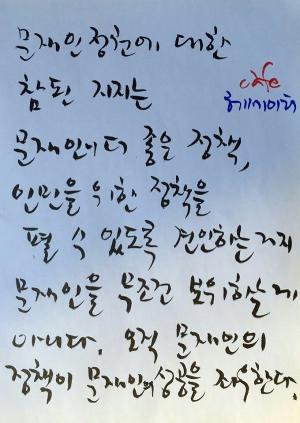 문재인정권에 대한
참된 지지는
cafe
문재인이 더 좋을 정책,
인민을 위한 정책을
펼 수 있도록 견인하는거지
문재인을 무조건 보위하는게
아니다. 오직 문재인의
정책이 문재인의 성공을 좌우한다.